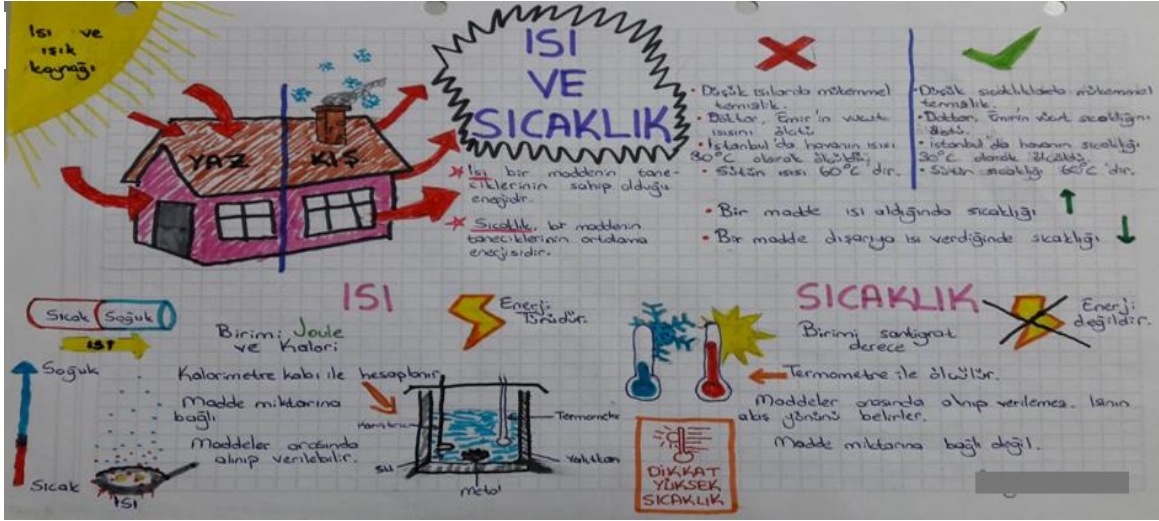 Isı ve
ışık
kaynağı
YAZ
KIŞ
ISI
VE
SICAKLIK
Isı bir maddenin tane-
ciklerinin sahip olduğu
enerjidir.
Sıcaklık, bir maddenin
taneciklerinin ortalama
enerjisidir.
• Düşük ısılarda mükemmel
temizlik.
• Doktor, Emir'in vücut
ısısını ölçtü
• İstanbul'da havanın ısısı
30°C olarak ölçüldü.
• Sütün ısısı 60°C'dir.
• Düşük sıcaklıklarda mükemmel
temizlik.
• Doktor, Emir'in vücut sıcaklığını
ölçtü.
• İstanbul'da havanın sıcaklığı
30°C olarak ölçüldü.
• Sütün sıcaklığı 60°C'dir.
• Bir madde ısı aldığında sıcaklığı
• Bir madde dışarıya ısı verdiğinde sıcaklığı
ISI
Sıcak
Soğuk
ISI
Soğuk
Sıcak
ISI
Birimi Joule
ve Kalori
Enerji
Türüdür.
Kalorimetre kabı ile hesaplanır
Madde miktarına
bağlı
Maddeler arasında
alınıp verilebilir.
Karıştırıcı
Termometre
Su
Yalıtkan
metal
SICAKLIK
Enerji
değildir.
Birimi santigrat
derece
Termometre ile ölçülür.
Maddeler arasında alınıp verilemez. Isının
akış yönünü belirler.
Madde miktarına bağlı değil.
DİKKAT
YÜKSEK
SICAKLIK